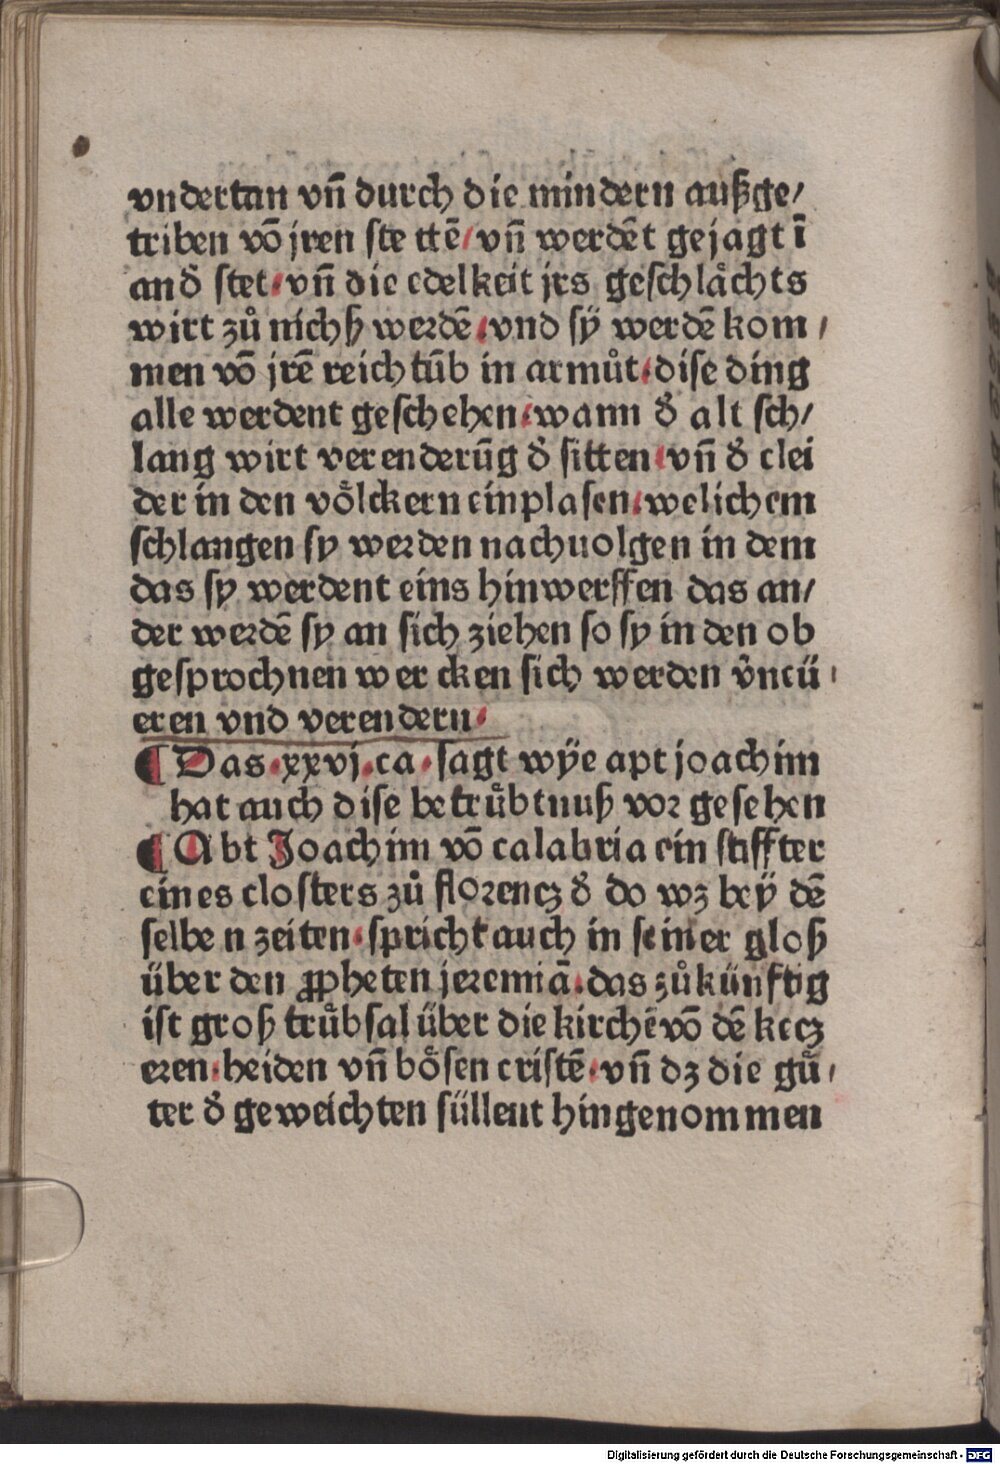 vndertan vn̄ durch die mindern außge/
triben vō jren stettē/ vn̄ werdēt gejagt ī
and̄ stet· vn̄ die edelkeit jrs geschlåchts
wirt zů nichß werdē· vnd sÿ werdē kom/
men vō jrē reichtūb in armůt· dise ding
alle werdent geschehen· wann d̄ alt sch/
lang wirt verenderūg d̄ sitten· vn̄ d̄ clei
der in den vo̊lckern einplasen· welichem
schlangen sy werden nachuolgen in dem
das sy werdent eins hinwerffen das an/
der werdē sy an sich ziehen so sy in den ob
gesprochnen wercken sich werden v̄ncü/
eren vnd verendern·
¶ Das·xxvj·ca·sagt wÿe apt joachim
hat auch dise betrůbtnuß vor gesehen
¶ Abt Joachim vō calabria ein stiffter
eines closters zů florencz d̄ do wz beÿ dē
selben zeiten· spricht auch in seiner gloß
über den ꝓpheten jeremiā· das zůkünftig
ist groß trůbsal über die kirchē vō dē kecz
eren· heiden vn̄ bo̊sen cristē· vn̄ dz die gů/
ter d̄ geweichten süllent hingenommen
Digitalisierung gefördert durch die Deutsche Forschungsgemeinschaft - DFG